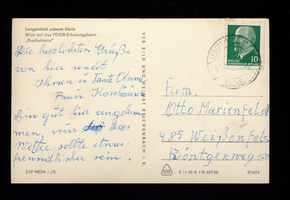 Lengenfeld unterm Stein
Blick auf das FDGB-Erholungsheim
"Bischofstein"
Die herzlichsten Grüße
von hier sendet
Ihnen u. Tante Anna
Frau
Bin gut hier angekommen
men, nur das
Wetter sollte etwas
freundlicher sein.
VEB BILD UND HEIMAT REICHENBACH i. V.
10
Fam.
Otto Marienfeld
485 Weißenfels
Röntgenweg